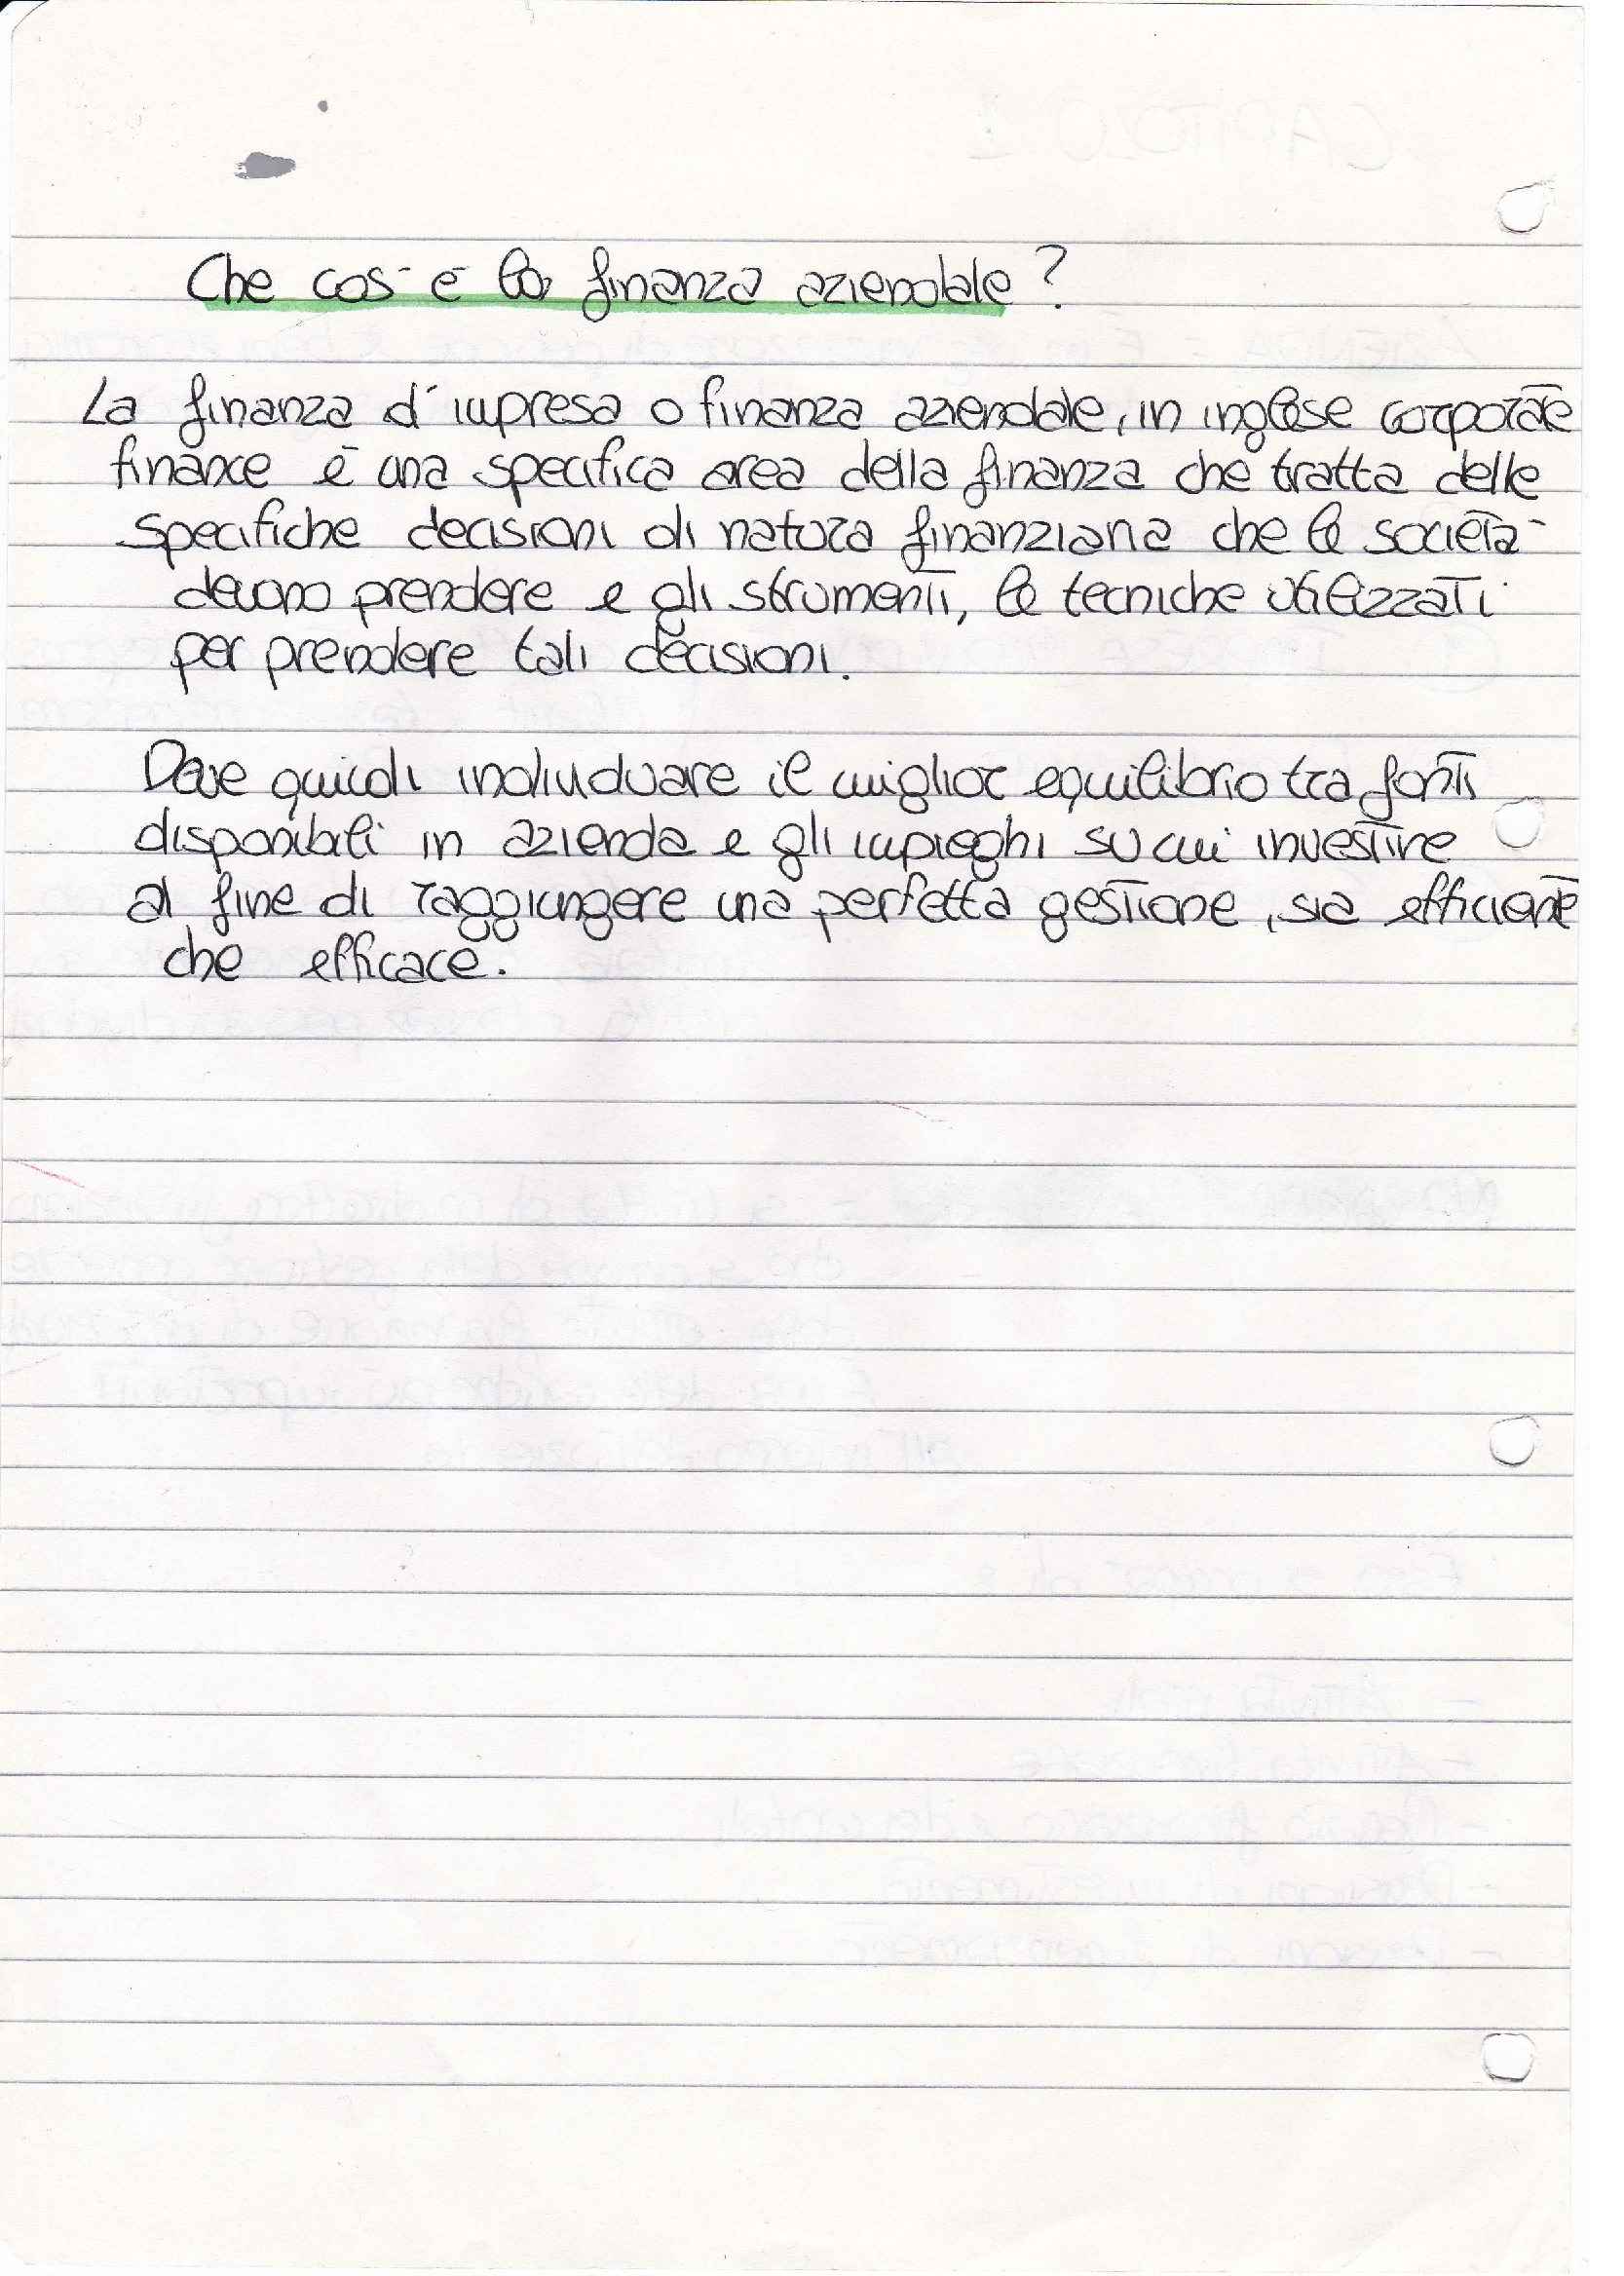 Che cos'è la finanza aziendale?
La finanza d'impresa o finanza aziendale, in inglese corporate
finance è una specifica area della finanza che tratta delle
specifiche decisioni di natura finanziaria che le società
devono prendere e gli strumenti, le tecniche utilizzati
per prendere tali decisioni.
Deve quindi individuare il miglior equilibrio tra fonti
disponibili in azienda e gli impieghi su cui investire
al fine di raggiungere una perfetta gestione, sia efficiente
che efficace.